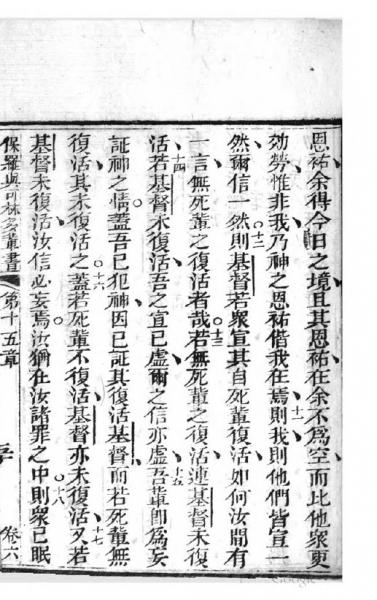 恩祐余得今日之境且其恩祐在余不爲空而比他衆更
効勞惟非我乃神之恩祐偕我在焉十一則我則他們皆宣一
然爾信一然十二則基督若衆宣其自死輩復活如何汝間有
一言無死輩之復活者哉十三若無死輩之復活連基督未復
活十四若基督未復活吾之宣已虛爾之信亦虛十五吾輩即爲妄
証神之情蓋吾已犯神因已証其復活基督而若死輩無
復活其未復活之十六蓋若死輩不復活基督亦未復活十七又若
基督未復活汝信必妄焉汝猶在汝諸罪之中十八則衆已眠
保羅與可林多輩書 第十五章 卷六